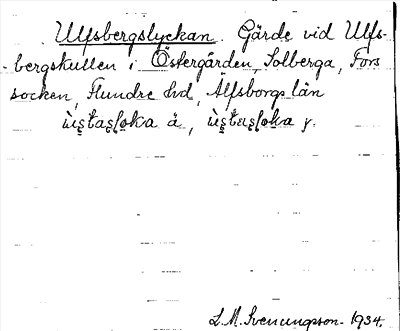 Ulfsbergslyckan. Gärde vid Ulfs-
bergskullen i Östergården, Solberga, Fors
socken, Flundre hd, Älfsborgs län
à, y.
L. M. Svenungsson. 1934.